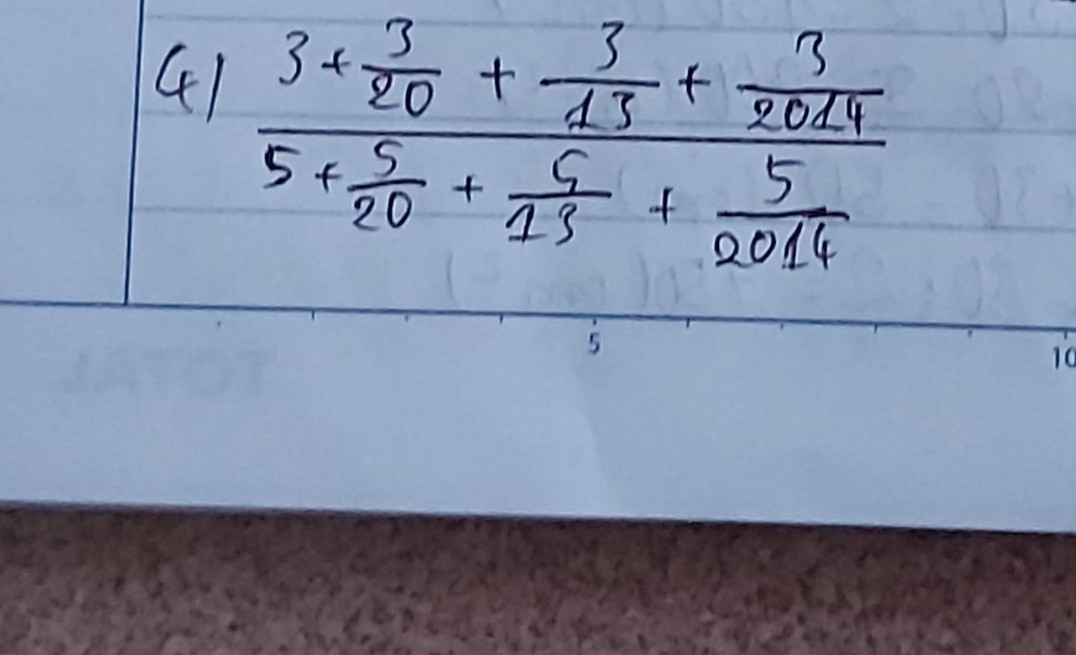 4) 3 + 3/20 + 3/13 + 3/2014
5 + 5/20 + 5/13 + 5/2014
5 10
TOTAL